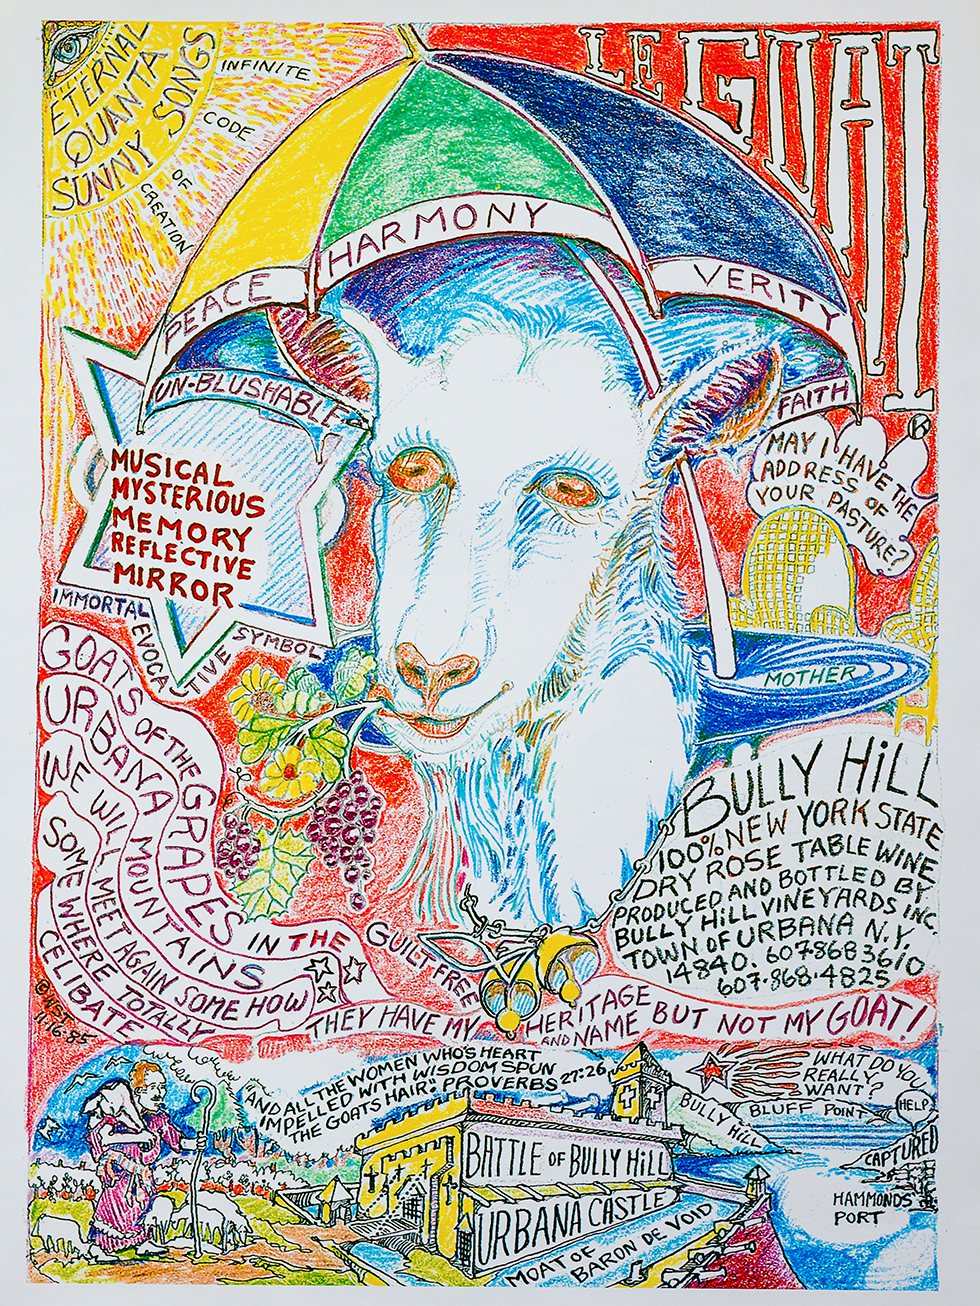 ETERNAL
QUANTA
SUNNY SONGS
INFINITE
CODE
OF
CREATION
LE GOAT
PEACE
HARMONY
VERITY
UN-BLUSHABLE
FAITH
MUSICAL
MYSTERIOUS
MEMORY
REFLECTIVE
MIRROR
IMMORTAL
EVOCATIVE
SYMBOL
MAY I HAVE THE
ADDRESS OF
YOUR PASTURE?
MOTHER
GOATS OF THE GRAPES IN THE
URBANA MOUNTAINS
WE WILL MEET AGAIN SOME HOW
SOME WHERE TOTALLY
CELIBATE
BULLY HILL
100% NEW YORK STATE
DRY ROSE TABLE WINE
PRODUCED AND BOTTLED BY
BULLY HILL VINEYARDS INC.
TOWN OF URBANA N.Y.
14840. 607-868 3610
607-868-4825
GUILT FREE
THEY HAVE MY HERITAGE
AND NAME BUT NOT MY GOAT!
AND ALL THE WOMEN WHO'S HEART
IMPELLED WITH WISDOM SPUN
THE GOATS HAIR": PROVERBS 27:26
WHAT DO YOU
REALLY
WANT?
BULLY HILL
BLUFF POINT
HELP
CAPTURED
HAMMONDS
PORT
BATTLE OF BULLY HILL
URBANA CASTLE
MOAT OF
BARON DE VOID